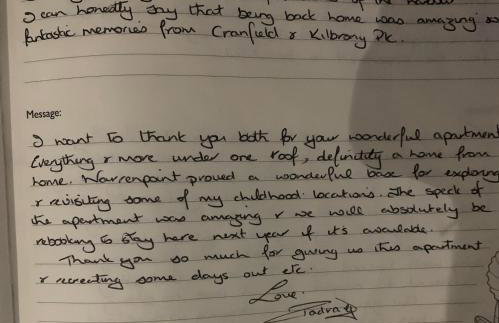 I can honestly say that being back home was amazing so
fantastic memories from Cranfield & Kilbrony Pk.
Message:
I want to thank you both for your wonderful apartment
Everything & more under one roof, definitely a home from
home. Warrenpoint proved a wonderful base for exploring
& revisiting some of my childhood locations. The speck of
the apartment was amazing & we will absolutely be
rebooking to stay here next year if it's available.
Thank you so much for giving us this apartment
& recreating some days out etc.
Love